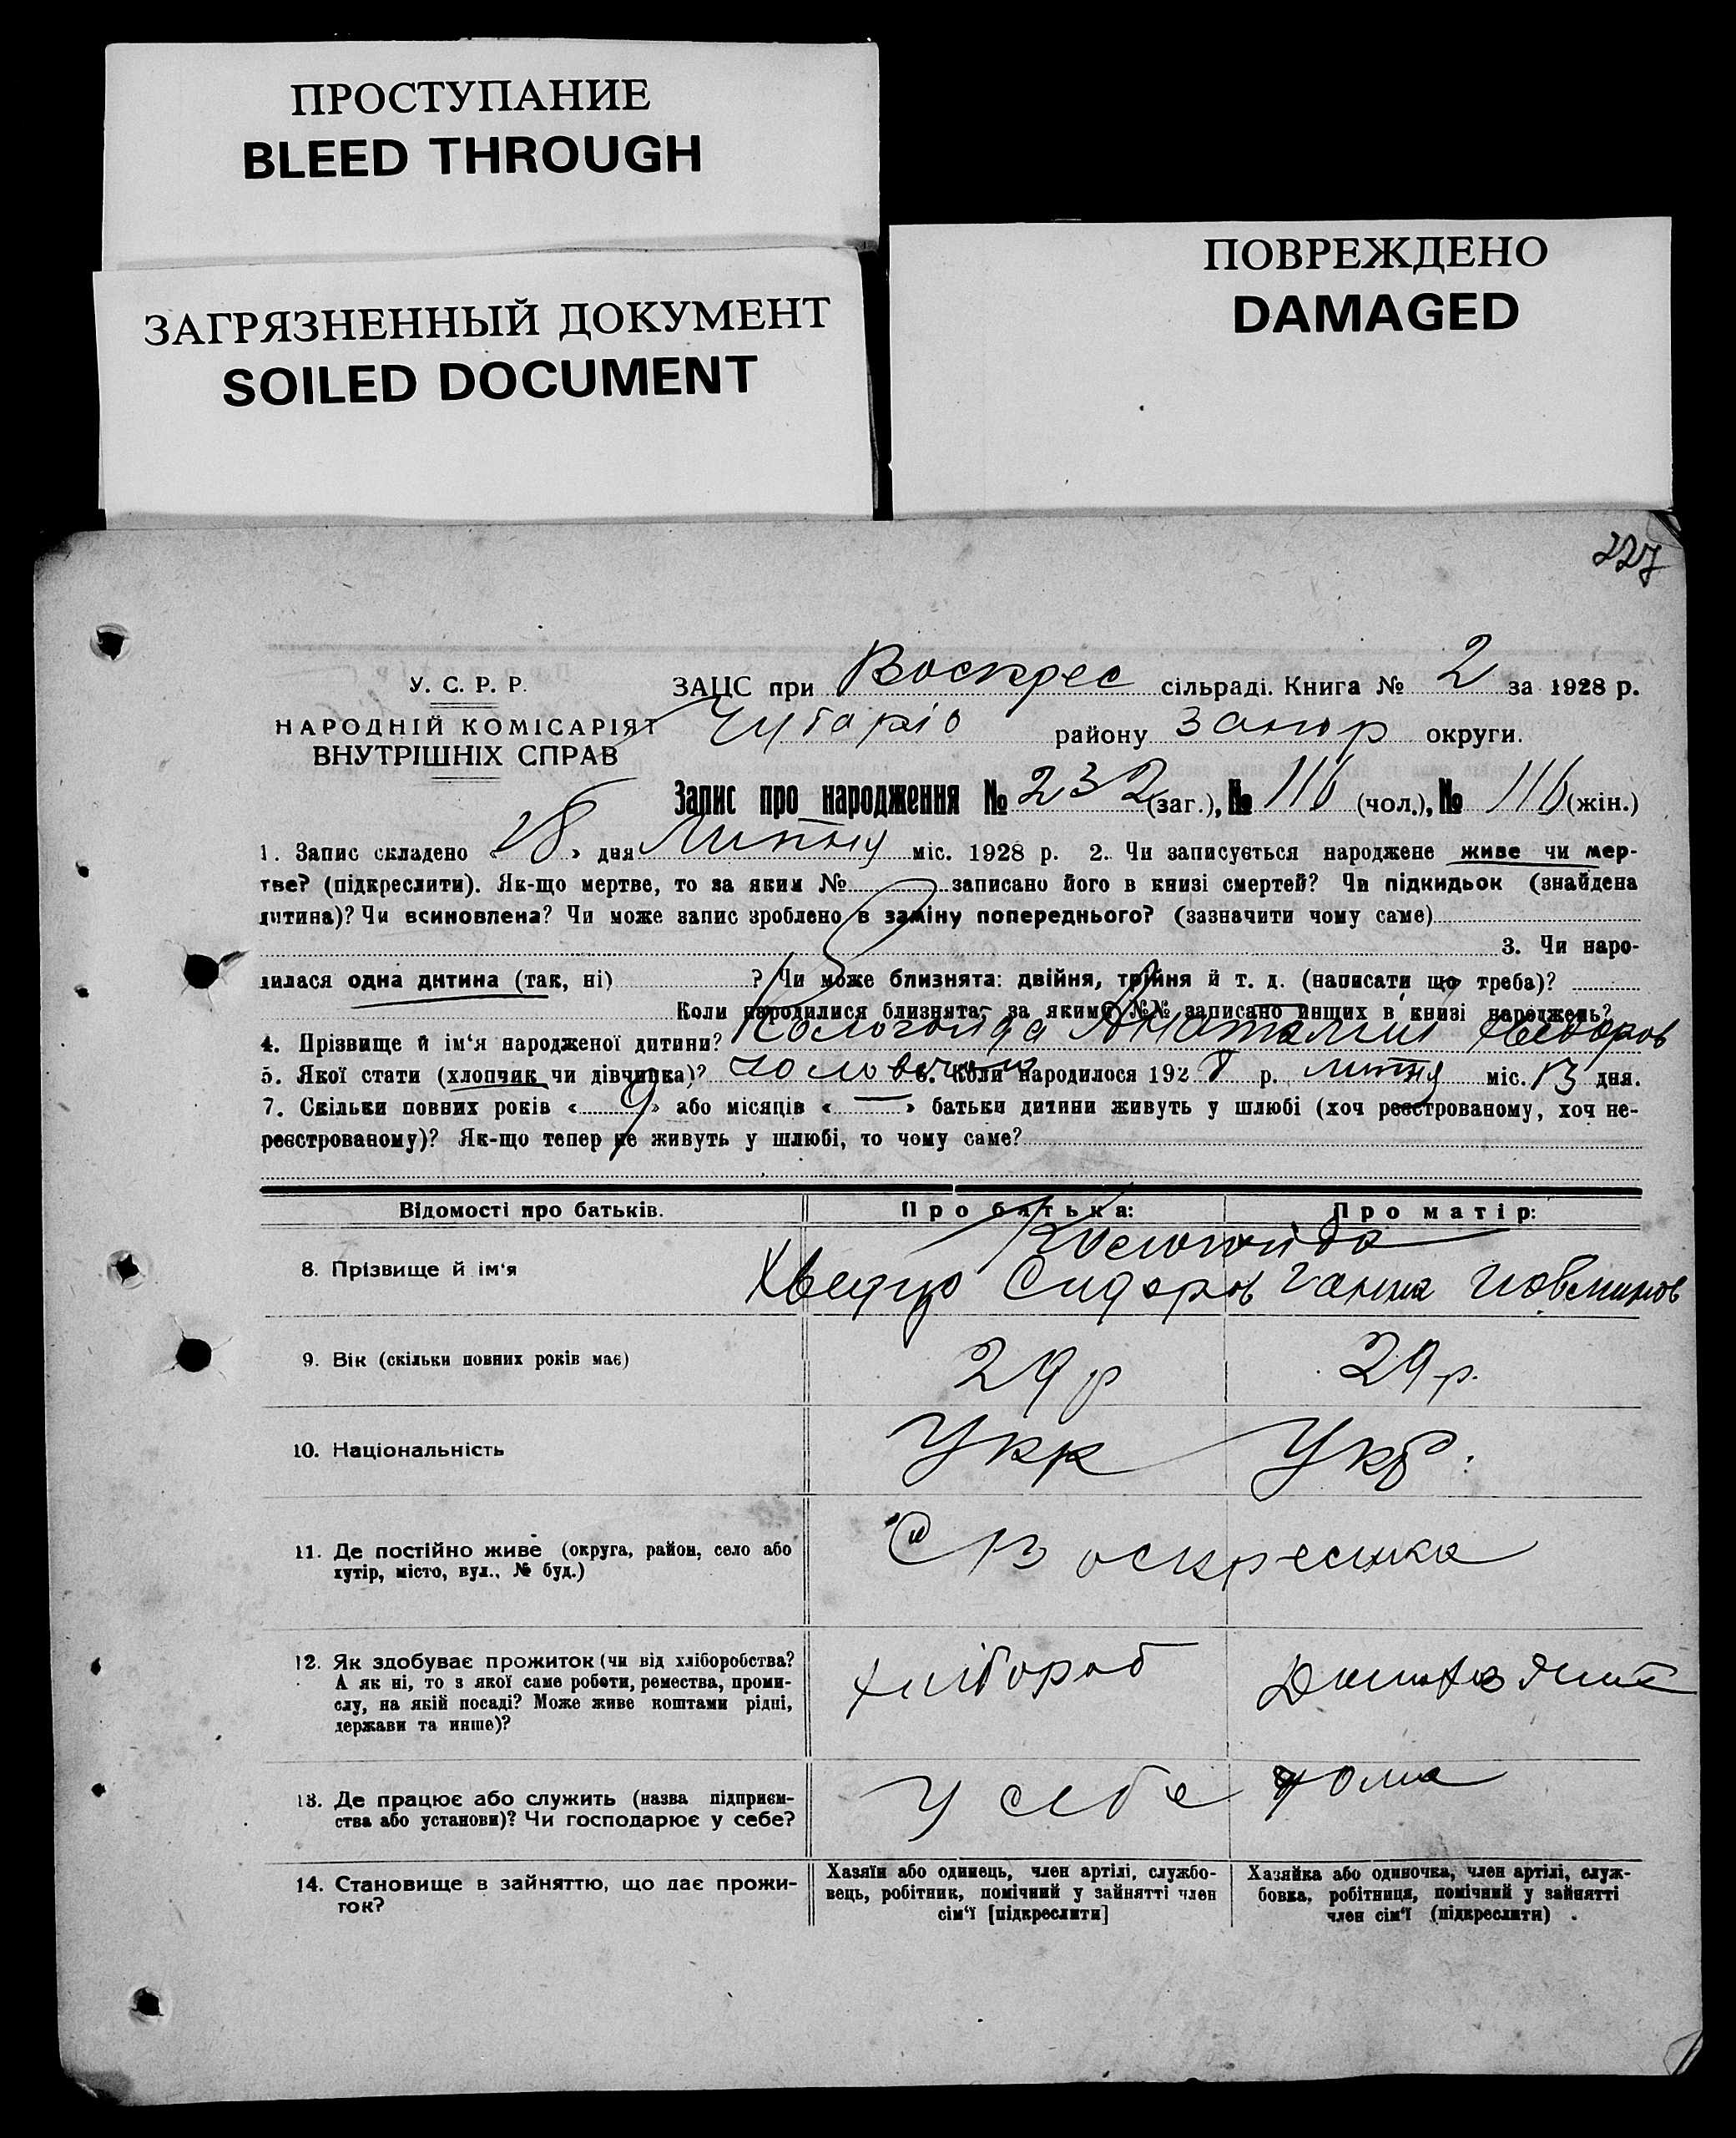 ПРОСТУПАНИЕ
BLEED THROUGH
ЗАГРЯЗНЕННЫЙ ДОКУМЕНТ
SOILED DOCUMENT
ПОВРЕЖДЕНО
DAMAGED
227
У. С. Р. Р.
НАРОДНІЙ КОМІСАРІЯТ
ВНУТРІШНІХ СПРАВ
ЗАЦС при Воскрес сільраді. Книга № 2 за 1928 р.
Чубарів району Запор округи.
Запис про народження № 232 (заг.), № 116 (чол.), № 116 (жін.)
1. Запис складено « 28 » дня Липня міс. 1928 р. 2. Чи записується народжене живе чи мер-
тве? (підкреслити). Як-що мертве, то за яким № записано його в книзі смертей? Чи підкидьок (знайдена
дитина)? Чи всиновлена? Чи може запис зроблено в заміну попереднього? (зазначити чому саме)
3. Чи наро-
дилася одна дитина (так, ні) ? Чи може близнята: двійня, трійня й т. д. (написати що треба)?
Коли народилися близнята, за якими №№ записано инших в книзі народжень?
4. Прізвище й ім'я народженої дитини? Анатолій Хведоров
5. Якої стати (хлопчик чи дівчинка)? чоловічої 6. Коли народилося 1928 р. липня міс. 13 дня.
7. Скільки повних років « 9 » або місяців « — » батьки дитини живуть у шлюбі (хоч реєстрованому, хоч не-
реєстрованому)? Як-що тепер не живуть у шлюбі, то чому саме?
Відомості про батьків. Про батька: Про матір:
8. Прізвище й ім'я
Хведір Сидоров Ганна
9. Вік (скільки повних років має) 29 р 29 р.
10. Національність Укр Укр.
11. Де постійно живе (округа, район, село або
хутір, місто, вул., № буд.)
С Воскресенка
12. Як здобуває прожиток (чи від хліборобства?
А як ні, то з якої саме роботи, ремества, проми-
слу, на якій посаді? Може живе коштами рідні,
держави та инше)?
хлібороб
13. Де працює або служить (назва підприєм-
ства або установи)? Чи господарює у себе?
у себе дома
14. Становище в зайняттю, що дає прожи-
ток?
Хазяїн або одинець, член артілі, службо-
вець, робітник, помічний у зайнятті член
сім'ї [підкреслити]
Хазяйка або одиночка, член артілі, служ-
бовка, робітниця, помічний у зайнятті
член сім'ї (підкреслити)